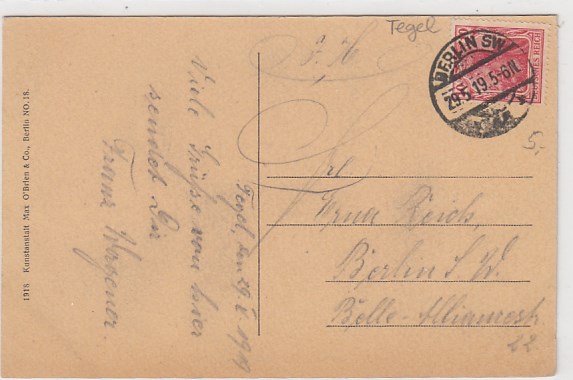 Tegel
BERLIN SW
29.5.19.5-6N.
DEUTSCHES REICH
5,-
Tegel, den 29.V.1919
Viele Grüße von hier
sendet Dir
Franz Wagener.
Frl.
Erna Reich,
Berlin S.W.
Belle-Alliancestr
22
1918 Kunstanstalt Max O'Brien & Co., Berlin NO.18.